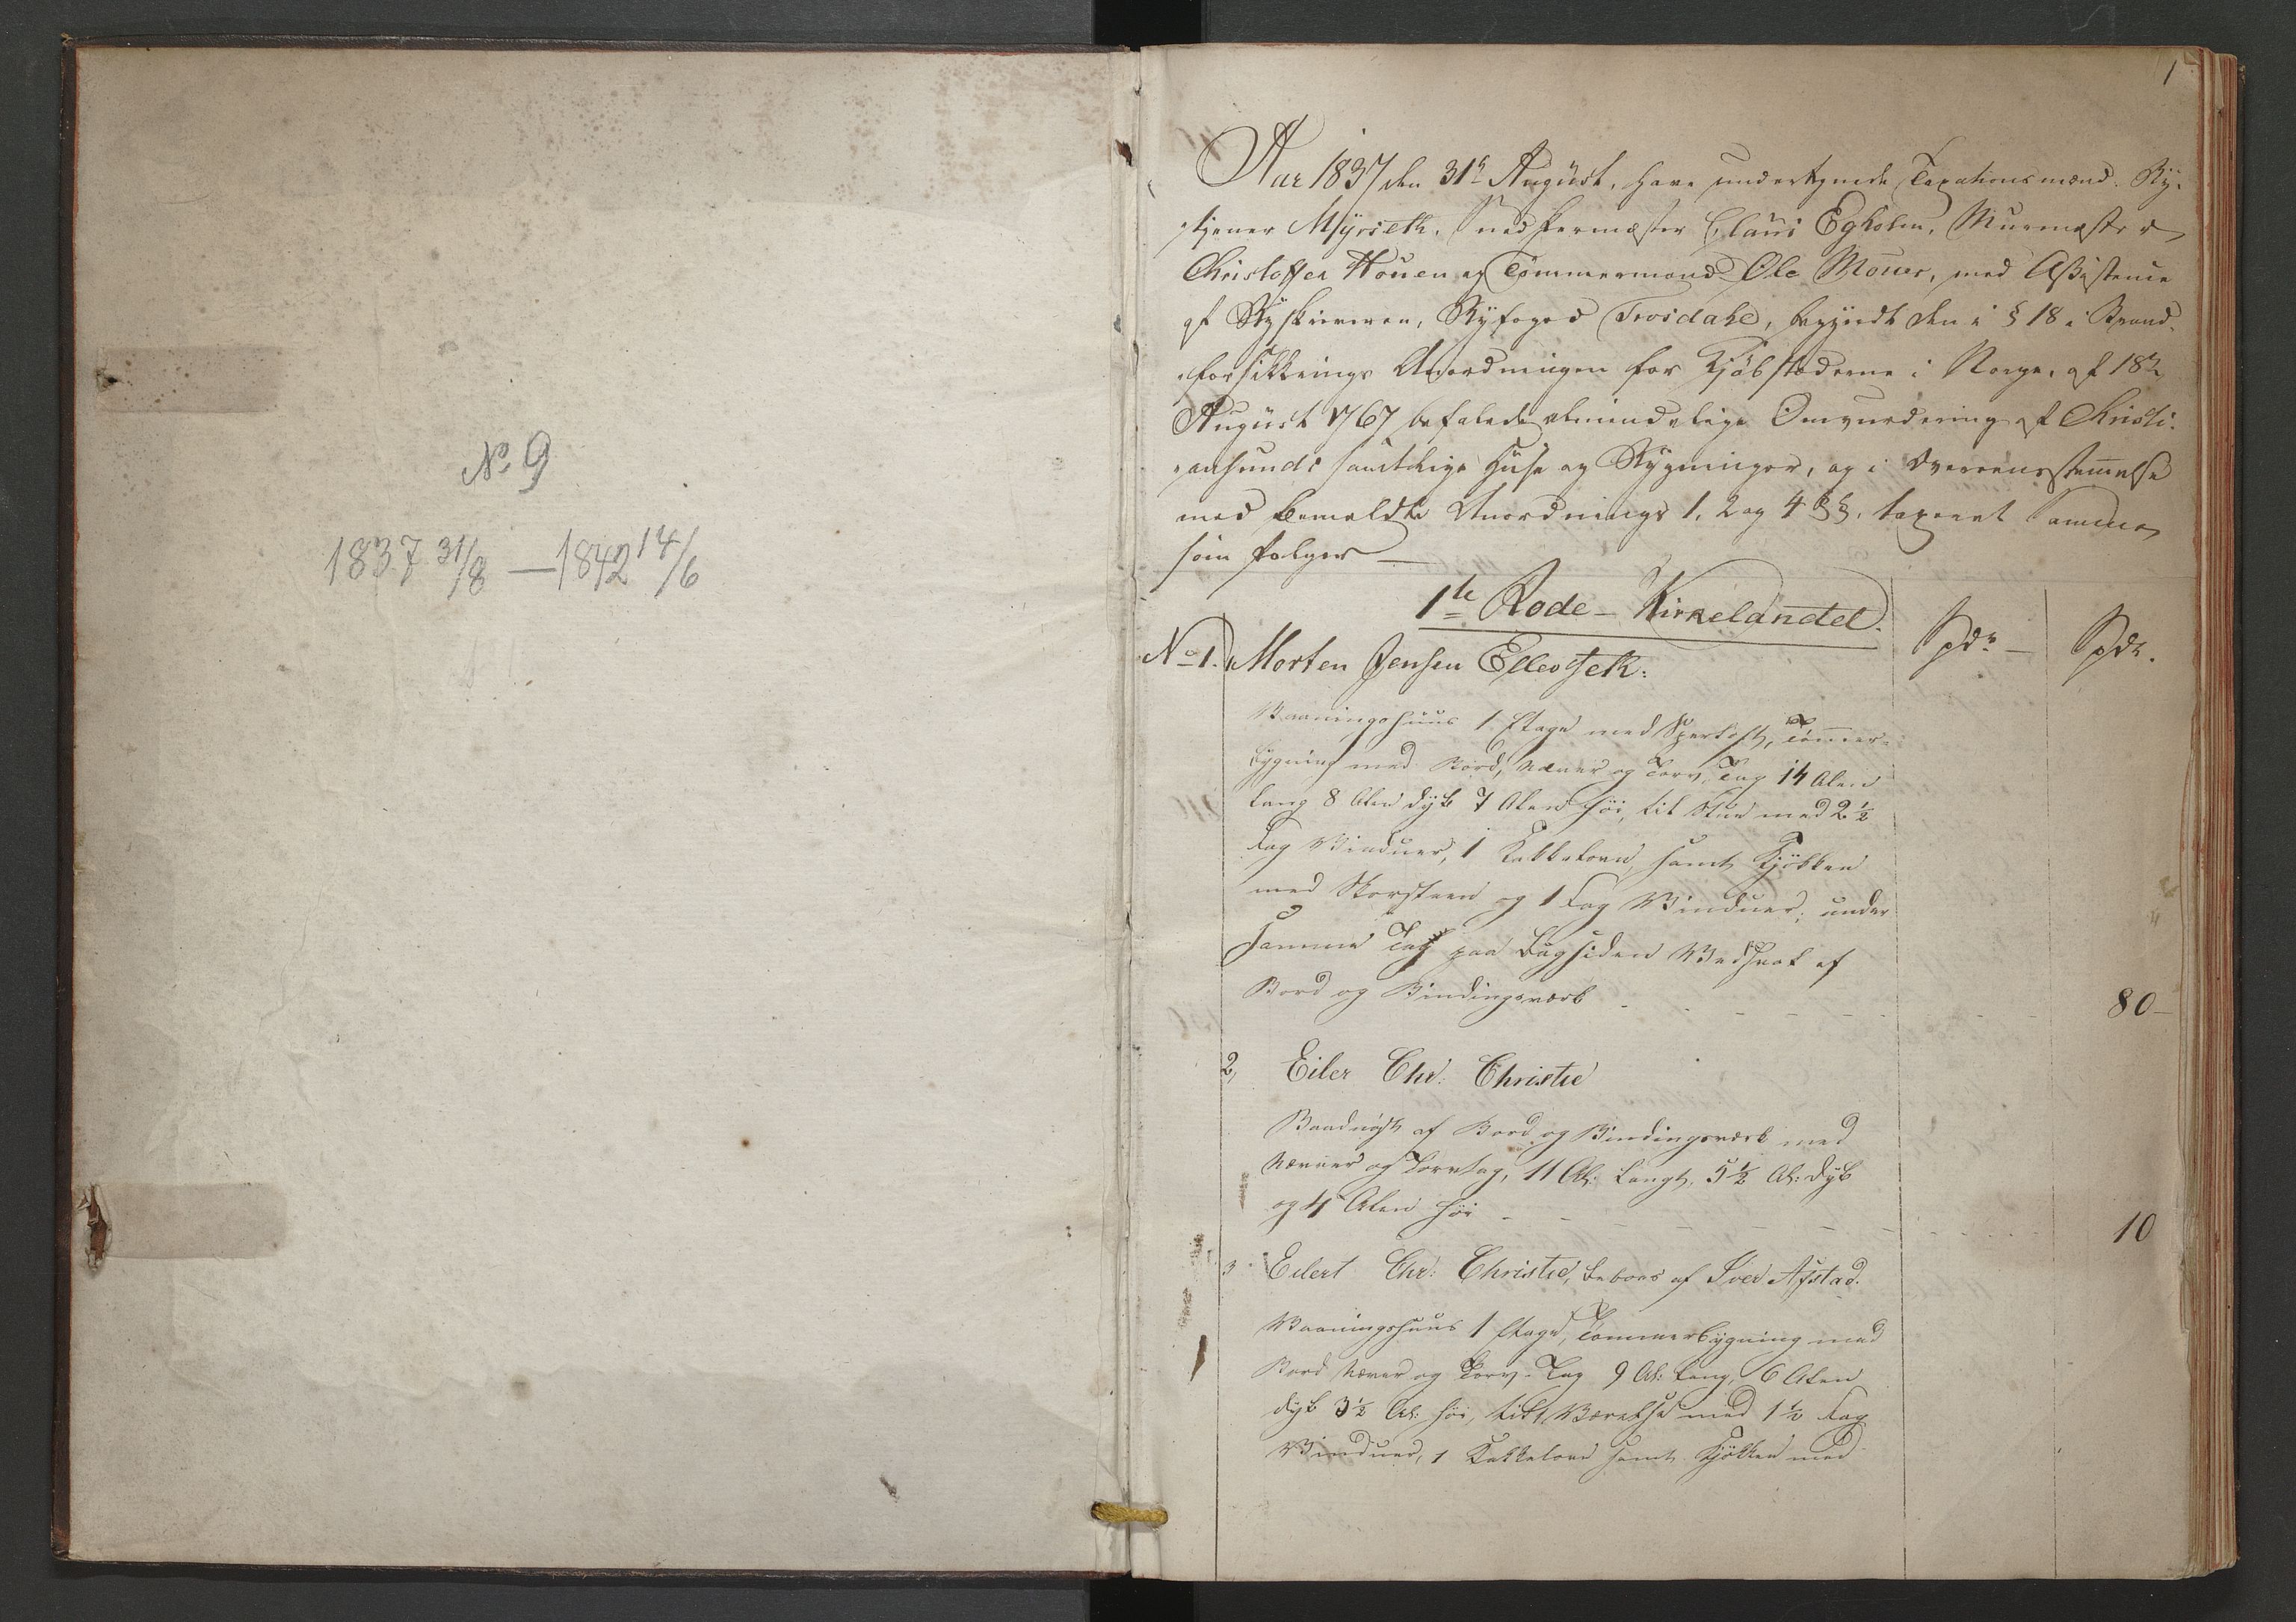 No 9
1837 31/8 — 1842 14/6
1
Aar 1837 den 31te August, have undertegnede Taxationsmænd. By-
tjener Myrseth, Snedkermester Claus Egholm, Muurmester
Christoffer Houen og Tømmermand Ole Moues, med Assistence
af Byskriveren, Byfoged Trosdahl, begyndt den i § 18 i Brand-
forsikkrings Anordningen for Kjøbstæderne i Norge, af 18de
August 1767 befalede almindelige Omvurdering af Christi-
ansunds samtlige Huse og Bygninger, og i Overeensstemmelse
med bemeldte Anordnings 1, 2 og 4 §§. taxeret Samme
som følger —
1te Rode - Kirkelandet.
Spdr — Spdr.
No 1. Morten Jensen
Vaaningshuus 1 Etage med Sperloft, Tømmer-
bygning med Bord, Næver og Torv-Tag 14 Alen
lang 8 Alen dyb 7 Alen høi, til Stue med 2 1/2
Fag Vinduer, 1 Kakkelovn, samt Kjøkken
med Skorsteen og 1 Fag Vinduer; under
samme Tag paa Bagsiden Vedskot af
Bord og Bindingsværk - - - - - - 80 -
2, Eiler Chr: Christie
Baadnøst af Bord og Bindingsværk med
Næver og Torvtag, 11 Al: langt, 5 1/2 Al: dyb
og 4 Alen høi - - - - - - 10
3 Eilert Chr: Christie, beboes af Iver Afstad.
Vaaningshuus 1 Etage, Tømmerbygning med
Bord Næver og Torv-Tag 9 Al: lang, 6 Alen
dyb 3 1/2 Al: høi, til 1 Værelse med 1 1/2 Fag
Vinduer, 1 Kakkelovn samt Kjøkken med